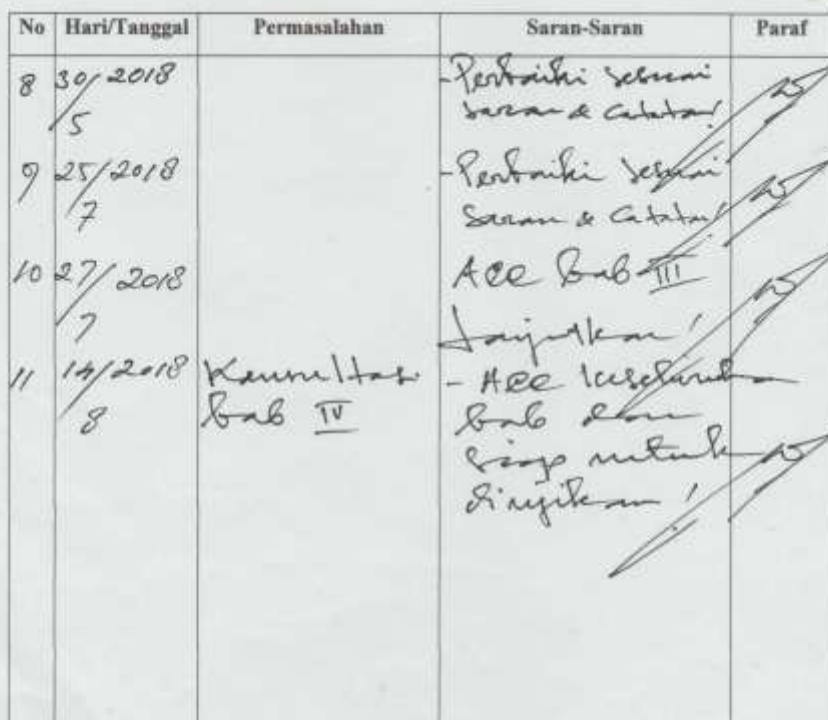 No Hari/Tanggal Permasalahan Saran-Saran Paraf
8 30/5 2018 - Perbaiki sesuai
saran & catatan!
9 25/7 2018 - Perbaiki sesuai
saran & catatan!
10 27/7 2018 Acc bab III
lanjutkan!
11 14/8 2018 Konsultasi - Acc keseluruhan
bab IV bab dan
siap untuk
diujikan!